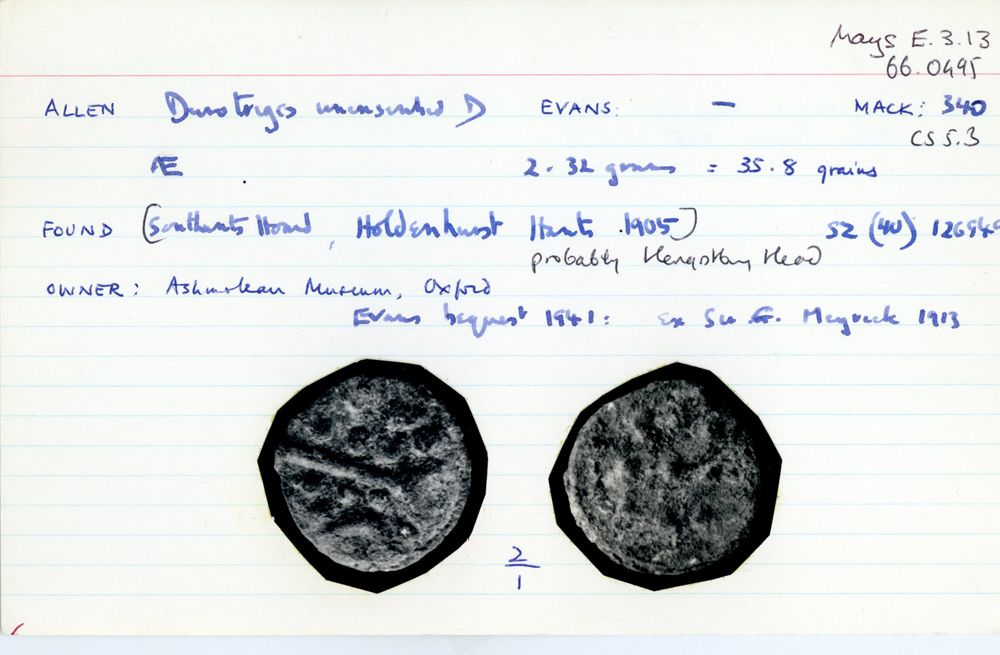 Mays E.3.13
66.0495
ALLEN Durotriges uninscribed D EVANS: — MACK: 340
CS 5.3
Æ 2.32 grams = 35.8 grains
FOUND (Southants Hoard, Holdenhurst Hants 1905) SZ (40)
probably Hengistbury Head
OWNER: Ashmolean Museum, Oxford
Evans bequest 1941: ex Sir G. Meyrick 1913
2
1